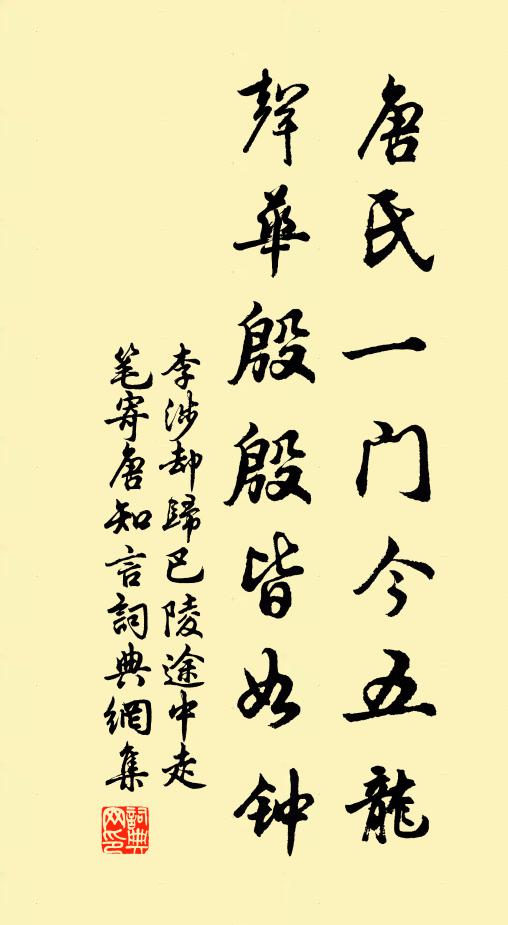 唐氏一门今五龍
聲華殷殷皆如钟
李涉却歸巴陵途中走
笔寄唐知言詞典網集
詞典
网印